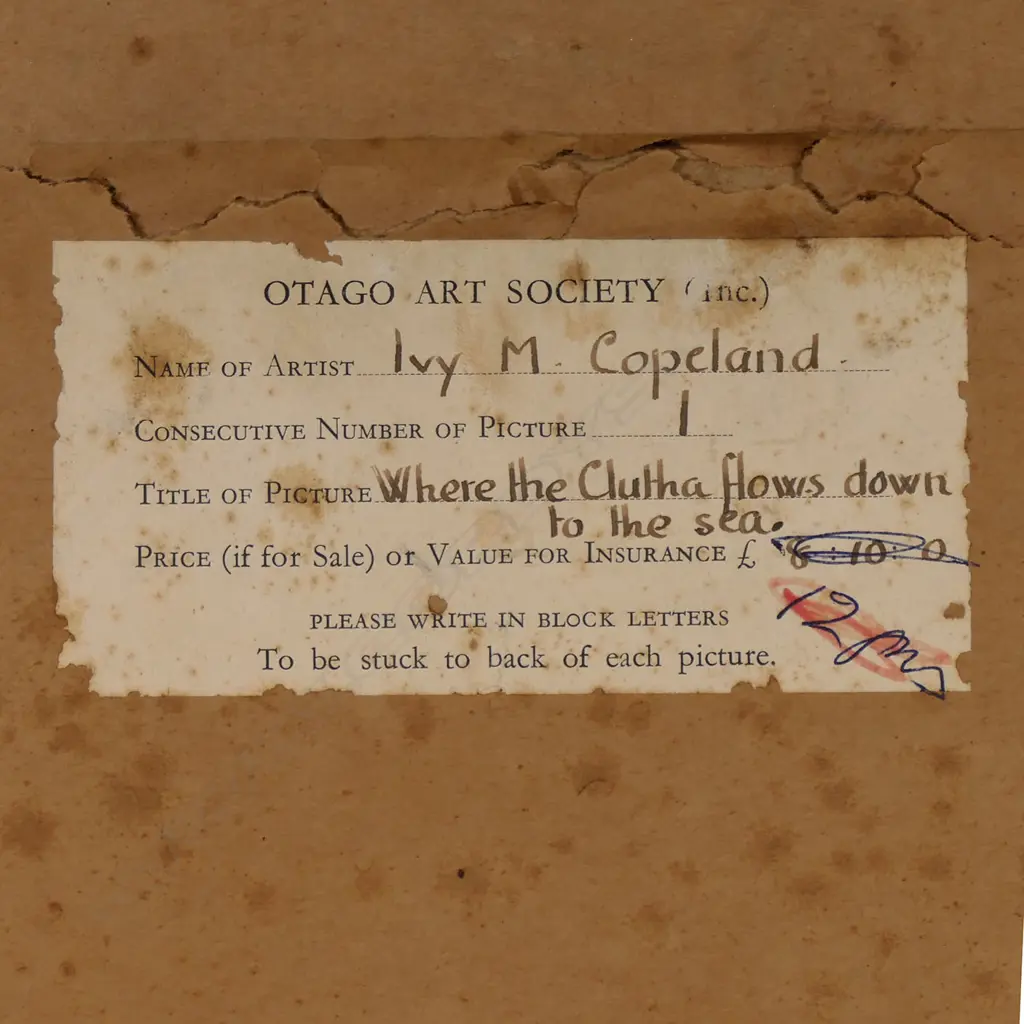 OTAGO ART SOCIETY (Inc.)
NAME OF ARTIST Ivy M. Copeland.
CONSECUTIVE NUMBER OF PICTURE 1
TITLE OF PICTURE Where the Clutha flows down
to the sea.
PRICE (if for Sale) or VALUE FOR INSURANCE £ 8.10.0
12
PLEASE WRITE IN BLOCK LETTERS
To be stuck to back of each picture.